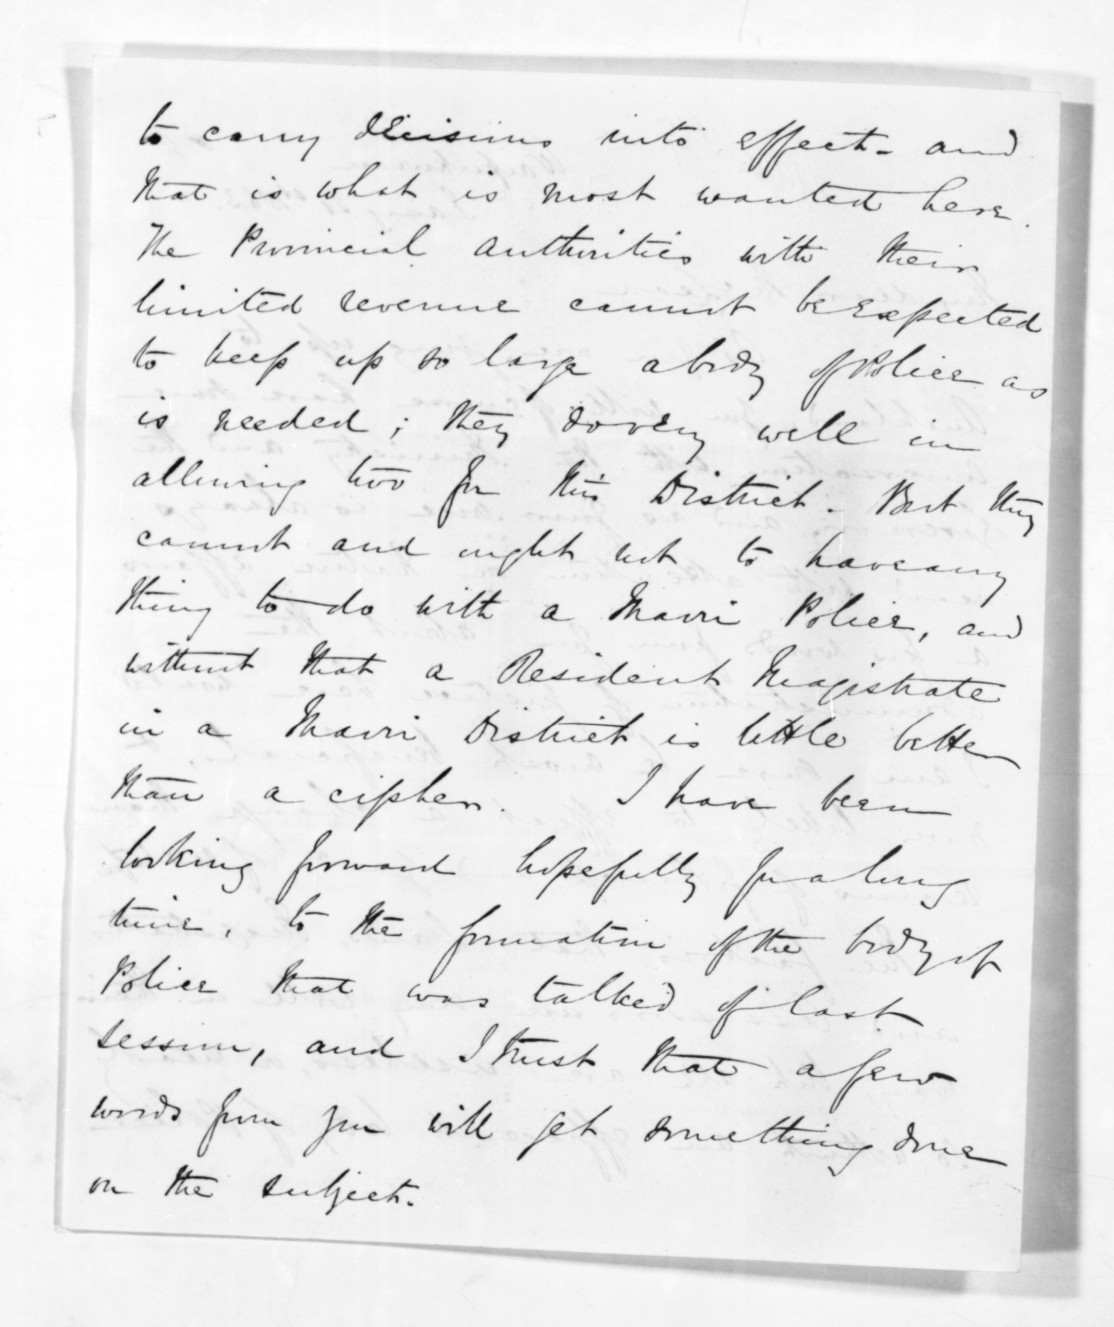 to carry decisions into effect - and
that is what is most wanted here.
The Provincial Authorities with their
limited revenue cannot be expected
to keep up so large a body of Police as
is needed; they do very well in
allowing two for this District. But they
cannot and ought not to have any
thing to do with a Maori Police, and
without that a Resident Magistrate
in a Maori District is little better
than a cipher. I have been
looking forward hopefully for a long
time, to the formation of the body of
Police that was talked of last
session, and I trust that a few
words from you will get something done
on the subject.